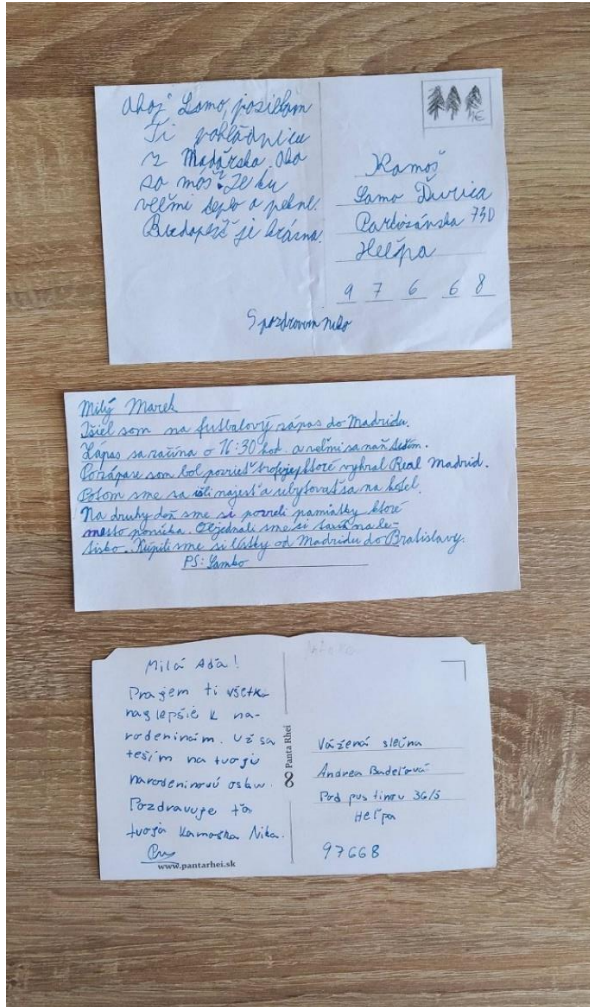 Ahoj Samo, posielam
Ti pohľadnicu
z Maďarska. Ako
sa máš? Je tu
veľmi teplo a pekne.
Budapešť je krásna.
S pozdravom
1€
Kamoš
Samo Ďurica
Partizánska 73D
Heľpa
9 7 6 6 8
Milý Marek
Išiel som na futbalový zápas do Madridu.
Zápas sa začína o 16:30 hod. a veľmi sa naň teším.
Po zápase som bol pozrieť trofeje ktoré vyhral Real Madrid.
Potom sme sa išli najesť a ubytovať sa na hotel.
Na druhy deň sme si pozreli pamiatky ktoré
mesto ponúka. Objednali sme si taxík na le-
tisko. Kúpili sme si lístky od Madridu do Bratislavy.
PS: Samko
Milá Aďa!
Prajem ti všetko
najlepšie k na-
rodeninám. Už sa
teším na tvoju
narodeninovú oslavu.
Pozdravuje ťa
tvoja kamoška Nika.
www.pantarhei.sk
Panta Rhei
Vážená slečna
Andrea Badeľová
Pod pustinou 36/5
Heľpa
97668